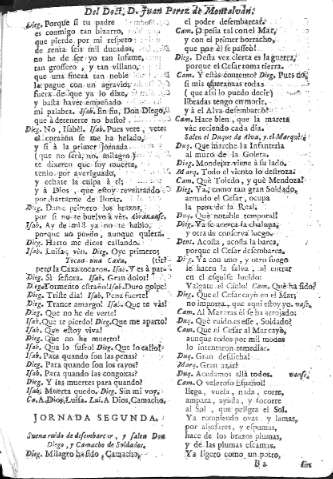 Del Doct. D. Juan Perez de Montalvan.
Dieg. Porque si tu padre
es conmigo tan bizarro,
que pierde por mi respeto
de renta seis mil ducados,
no he de ser yo tan
tan grossero, y tan villano,
que una fineza tan noble
la pague con un agravio;
fuera de que ya lo dixe,
y basta haver empeñado
mi palabra. Isab. En fin, Don Diego,
que à detenerte no basto?
Dieg. No, Isabèl. Isab. Pues vete, vete
el corazon se me ha helado,
y si à la primer jornada
(que no serà, no, milagro)
te dixeren que soy muerta,
tenlo por averiguado,
y echate la culpa à ti;
y à Dios, que estoy
por hartarme de llorar.
Dieg. Dame primero los brazos,
por si no te buelvo à vèr.
Isab. Ay de mi! ya no te hablo,
porque no puedo, aunque quiera.
Dieg. Harto me dices callando.
Isab. Luisa, vèn. Dieg. Oye primero;
Tocan una caxa,
pero la caxa Isab. Vete à
Dieg. Si señora. Isab. Gran dolor!
Dieg. Tormento estraño! Isab. Duro golpe!
Dieg. Triste dia! Isab. Pena fuerte!
Dieg. Trance amargo! Isab. Que te vàs!
Dieg. Que no he de verte!
Isab. Que te pierdo! Dieg. Que me aparto!
Isab. Que estoy viva!
Dieg. Que no he muerto!
Isab. Que lo sufro! Dieg. Que lo callo!
Isab. Para quando son las penas?
Dieg. Para quando son los rayos?
Isab. Para quando las congojas?
Dieg. Y las muertes para quando?
Isab. Muerta quedo. Dieg. Sin mi voy.
Ca. A Dios, Luisa. Lui. A Dios, Camacho.
JORNADA SEGUNDA.
Suena ruido de desembarcar, y salen Don
Diego, y Camacho de Soldados.
Dieg. Milagro ha sido, Camacho,
el poder desembarcar.
Cam. O pesia tal con el Mar,
y con el primer borracho,
que por èl se passò!
Dieg. Desta vez cierta es la guerra,
porque el Cesar toma tierra.
Cam. Y estàs contento? Dieg. Pues no,
si mis esperanzas todas
(que assi lo puedo decir)
libradas tengo en morir,
y à el Alva desembarcò?
Cam. Hace bien, que la mareta
vàe creciendo cada dia.
Salen el Duque de Alva, y el Marquès
Duq. Que marche la Infanteria
al muro de la Goleta.
Dieg. Mondejar viene à su lado.
Marq. Todo el viento lo destroza.
Cam. Què Toledo, y què Mendoza!
Dieg. Ya, como tan gran Soldado,
armado el Cesar, ocupa
la popa de la Real.
Duq. Què notable temporal!
Dieg. Ya se acerca la chalupa,
y otra de conserva luego.
Dent. Acosta, acosta la barca,
porque el Cesar desembarca.
Dieg. Ya con uno, y otro fuego
le hacen la salva, al entrar
en el esquife
Valgate el Cielo! Cam. Què ha sido?
Dieg. Que el Cesar cayò en el Mar;
no importa, que aqui estoy yo. vase.
Cam. Al Marques èl se ha arrojado.
Duq. Què ruido es esse, Soldado?
Cam. Que el Cesar al Mar cayò,
aunque todos por mil modos
lo intentaron remediar.
Duq. Gran desdicha!
Marq. Gran azar!
Duq. Acudamos allà todos. vanse.
Cam. O valeroso Español!
llega, vuela, nada, corre,
ampara, ayuda, y socorre
al Sol, que peligra el Sol.
Ya rompiendo ovas, y lamas,
por alfofares, y espumas,
hace de los brazos plumas,
y de las plumas escamas.
Ya ligero como un potro,
B 2